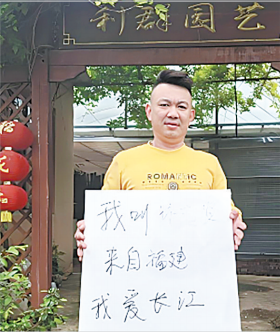 利群园艺
ROMANTIC
我叫
来自福建
我爱长江